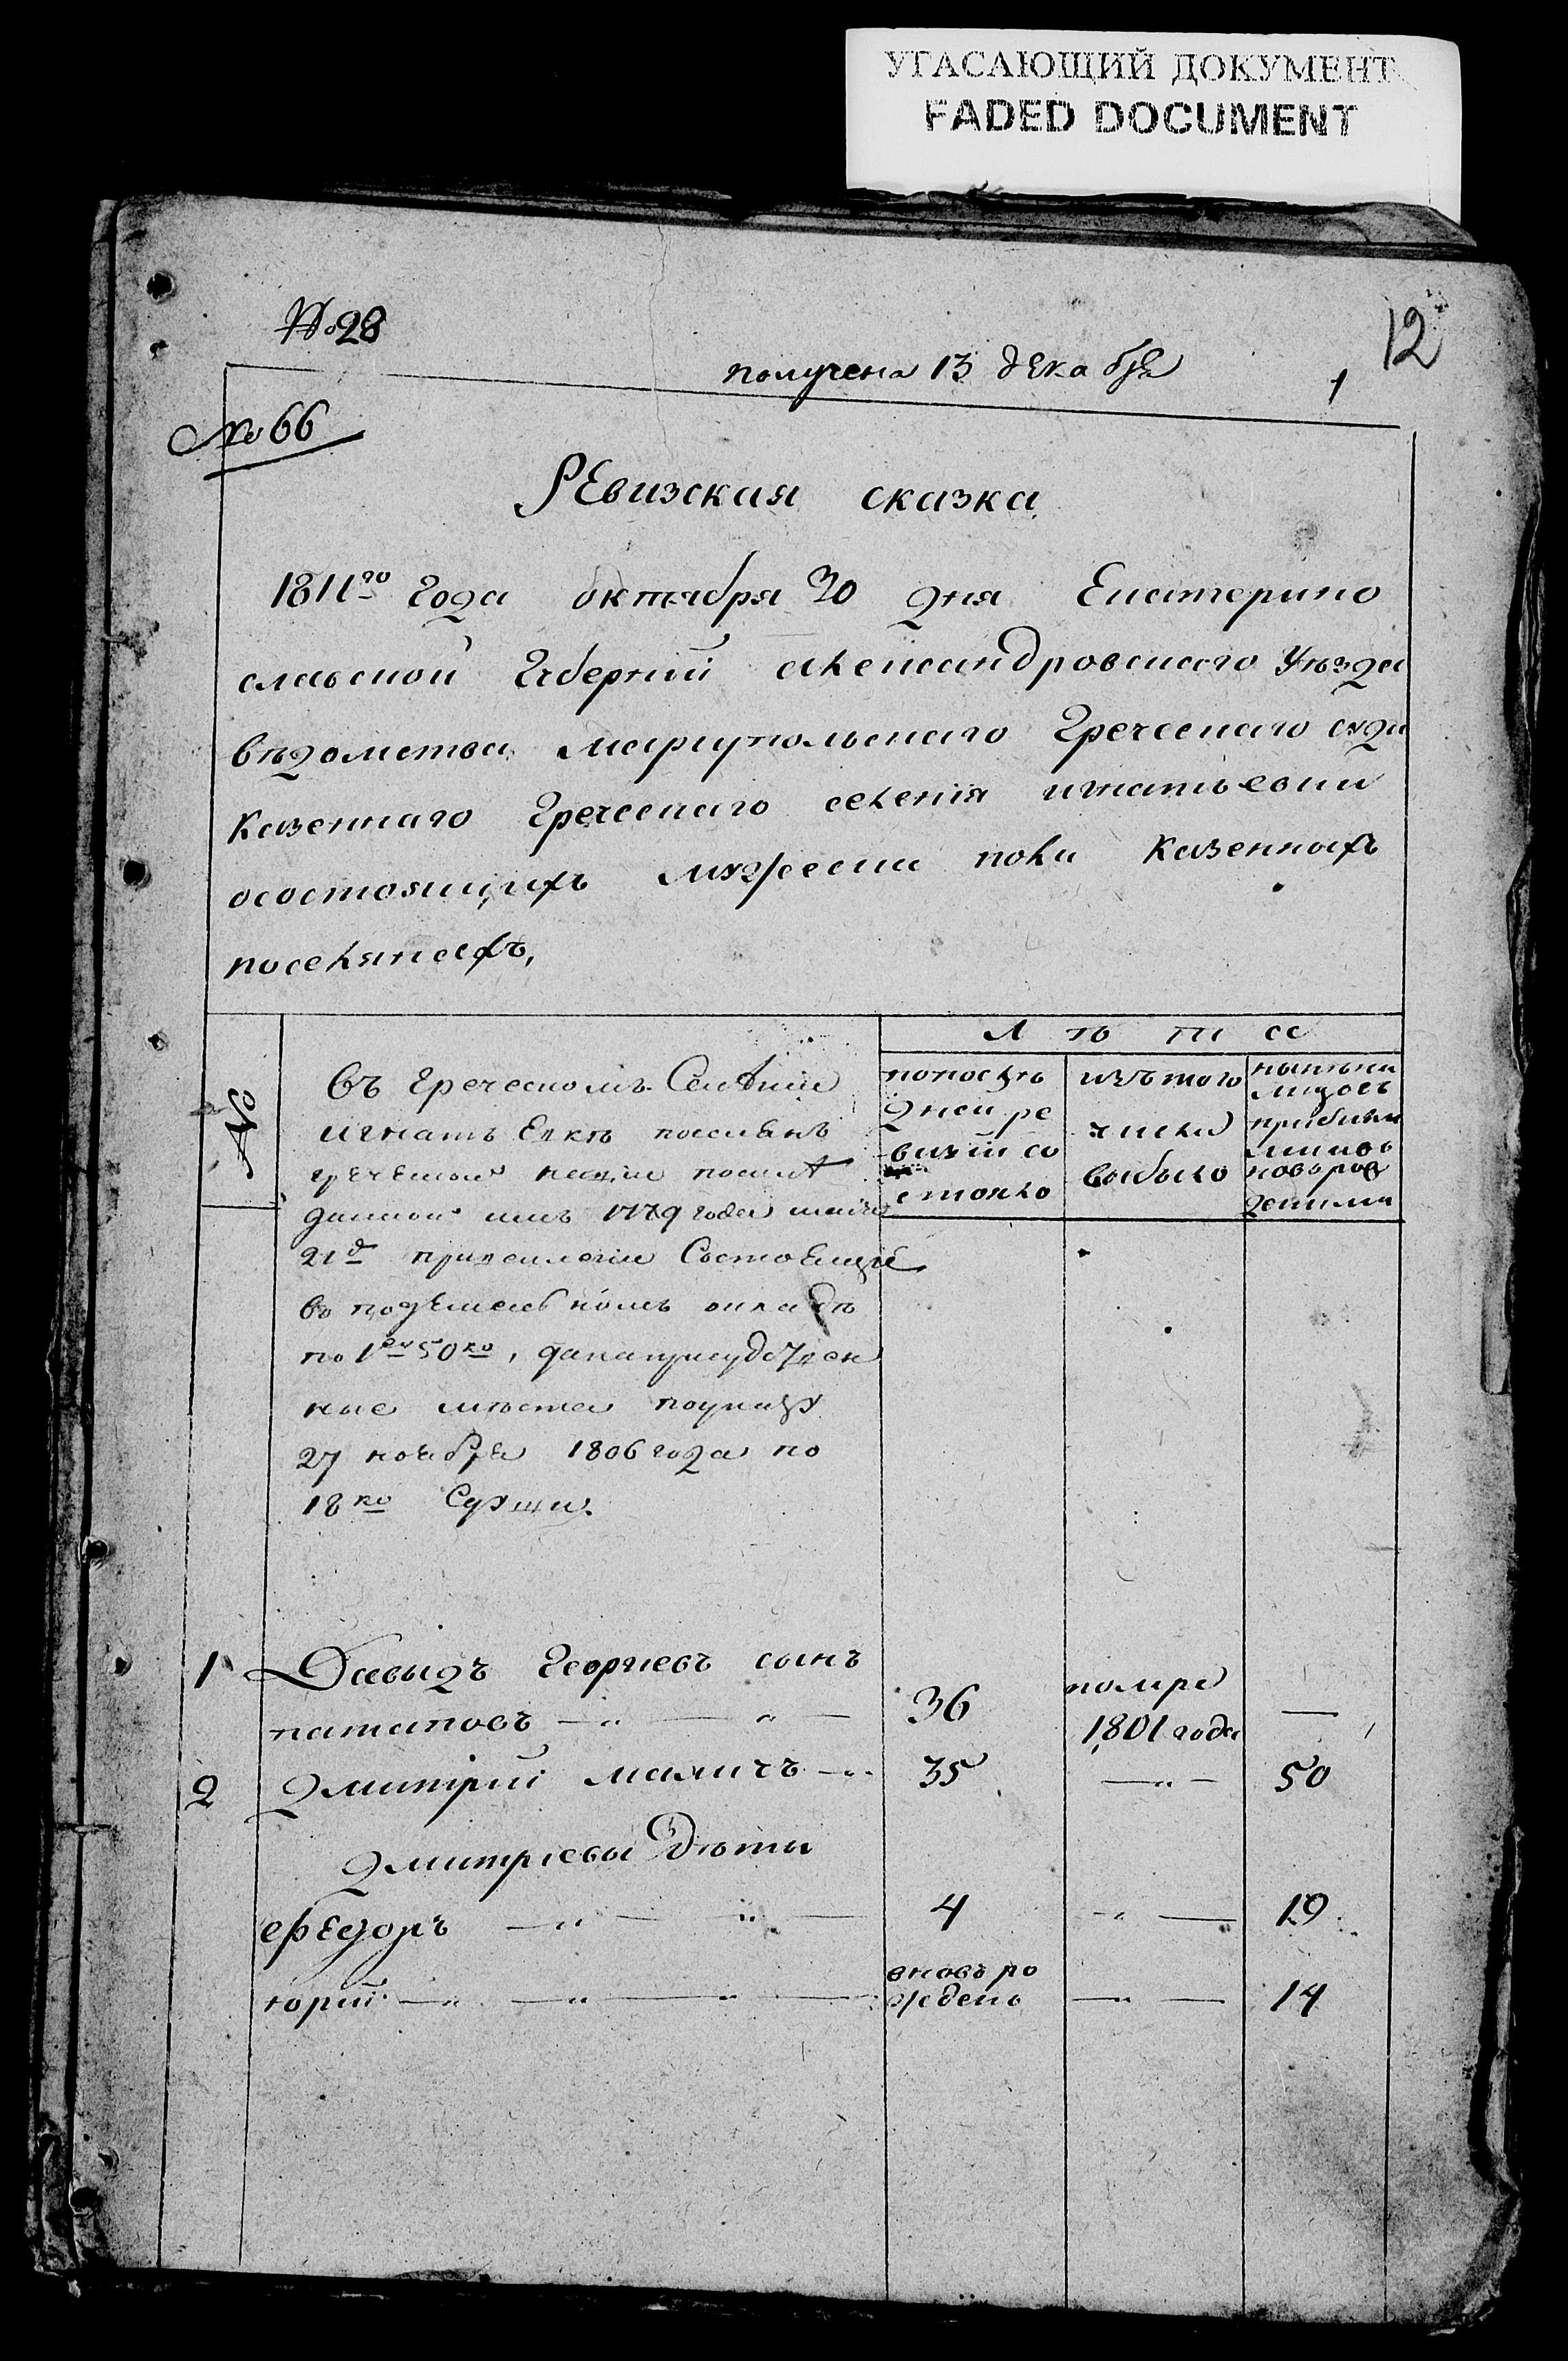 УГАСАЮЩИЙ ДОКУМЕНТ
FADED DOCUMENT
№ 28
12
получена 13 декабря
1
№ 66
Ревизская сказка
1811го года октября 30 дня Екатерино
славской Губернии александровскаго уѣзда
вѣдомства мариупольскаго Греческаго суда
Казеннаго Греческаго селения игнатьевки
осостоящихъ мужеска пола Казенныхъ
поселянахъ,
№
Въ греческомъ Селении
игнать Евкѣ поселянъ
греческой нации по
данной имъ 1779 года маия
21д привилегии Состоящие
въ подземельномъ окладѣ
по 1ру 50ко,
ные мѣста по указу
27 ноября 1806 года по
18ко Съ души.
Лѣта
попослѣ
дней ре
визии со
стояло
изъ того
числа
выбыло
нынѣ на
лицо съ
прибылы
ми и въ
новь рож
детыми
1 Давыдъ Георгиевъ сынъ
патаповъ — 〃 — 〃 — 36 помре 1801 года —
2 Дмитрий маличъ — 〃 35 — 〃 — 50
Дмитриевы Дѣти
Федоръ — 〃 — 〃 — 4 — 〃 — 19
юрий — 〃 — 〃 — 〃 — вновь ро
жденъ — 〃 — 14